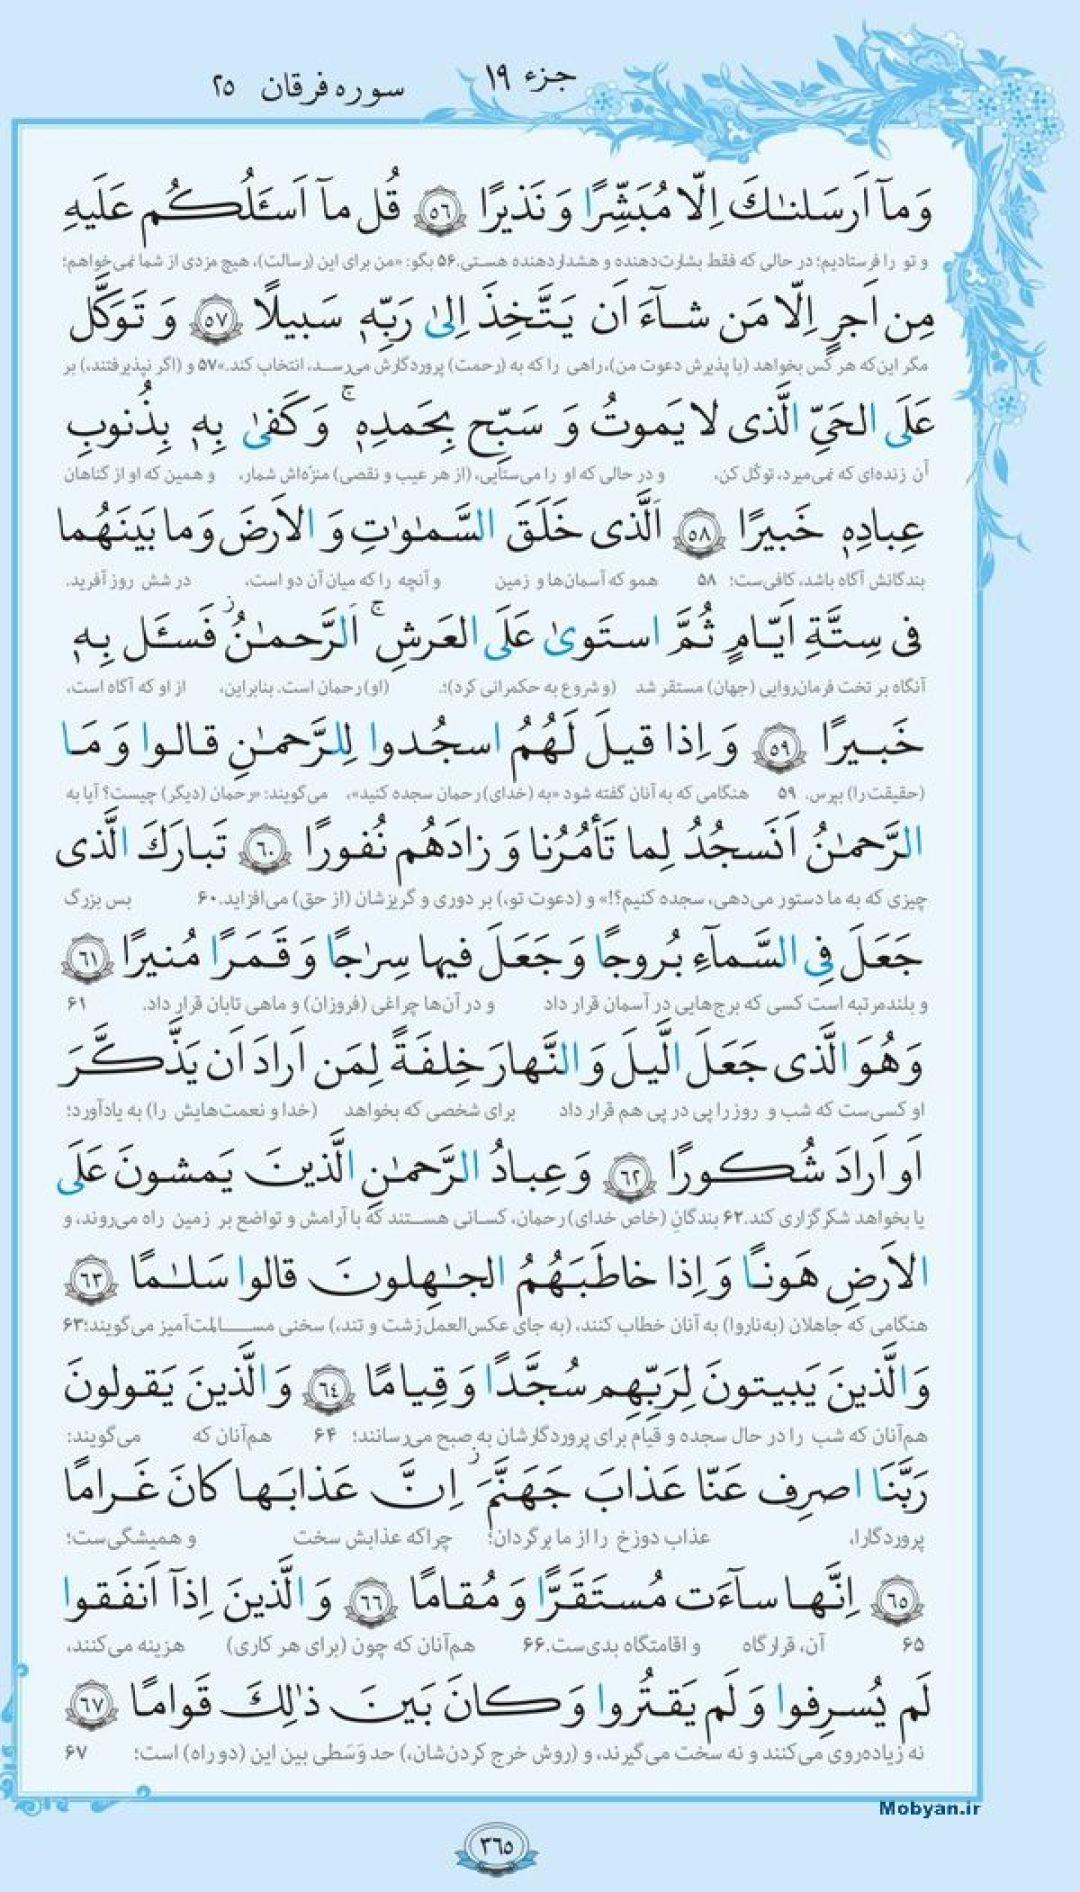 جزء ۱۹
سوره فرقان ۲۵
وَمآ اَرسَلنٰكَ اِلّا مُبَشِّرًا وَ نَذيرًا ﴿٥٦﴾ قُل مآ اَسـَٔلُكُم عَلَيهِ
و تو را فرستادیم؛ در حالی که فقط بشارت‌دهنده و هشداردهنده هستی.۵۶ بگو: «من برای این (رسالت)، هیچ مزدی از شما نمی‌خواهم؛
مِن اَجرٍ اِلّا مَن شـآءَ اَن يَتَّخِذَ اِلىٰ رَبِّهٖ سَبيلًا ﴿٥٧﴾ وَ تَوَكَّل
مگر این‌که هر کس بخواهد (با پذیرش دعوت من)، راهی را که به (رحمت) پروردگارش می‌رسد، انتخاب کند.»۵۷ و (اگر نپذیرفتند،) بر
عَلَى الحَيِّ الَّذى لا يَموتُ وَ سَبِّح بِحَمدِهٖ ۚ وَ كَفىٰ بِهٖ بِذُنوبِ
آن زنده‌ای که نمی‌میرد، توکّل کن، و در حالی که او را می‌ستایی، (از هر عیب و نقصی) منزّه‌اش شمار، و همین که او از گناهان
عِبادِهٖ خَبيرًا ﴿٥٨﴾ اَلَّذى خَلَقَ السَّمٰوٰتِ وَ الاَرضَ وَ ما بَينَهُما
بندگانش آگاه باشد، کافی‌ست؛ ۵۸ همو که آسمان‌ها و زمین و آنچه را که میان آن دو است، در شش روز آفرید.
فى سِتَّةِ اَيّامٍ ثُمَّ استَوىٰ عَلَى العَرشِ ۚ اَلرَّحمٰنُ فَسـَٔل بِهٖ
آنگاه بر تخت فرمان‌روایی (جهان) مستقر شد (و شروع به حکمرانی کرد)؛ (او) رحمان است. بنابراین، از او که آگاه است،
خَبيرًا ﴿٥٩﴾ وَ اِذا قيلَ لَهُمُ اسجُدوا لِلرَّحمٰنِ قالوا وَ مَا
(حقیقت را) بپرس. ۵۹ هنگامی که به آنان گفته شود «به (خدای) رحمان سجده کنید»، می‌گویند: «رحمان (دیگر) چیست؟ آیا به
الرَّحمٰنُ اَنَسجُدُ لِما تَأمُرُنا وَ زادَهُم نُفورًا ﴿٦٠﴾ تَبارَكَ الَّذى
چیزی که به ما دستور می‌دهی، سجده کنیم؟!» و (دعوت تو،) بر دوری و گریزشان (از حق) می‌افزاید.۶۰ بس بزرگ
جَعَلَ فِى السَّمآءِ بُروجًا وَ جَعَلَ فيها سِرٰجًا وَ قَمَرًا مُنيرًا ﴿٦١﴾
و بلندمرتبه است کسی که برج‌هایی در آسمان قرار داد و در آن‌ها چراغی (فروزان) و ماهی تابان قرار داد. ۶۱
وَ هُوَ الَّذى جَعَلَ الَّيلَ وَ النَّهارَ خِلفَةً لِمَن اَرادَ اَن يَذَّكَّرَ
او کسی‌ست که شب و روز را پی در پی هم قرار داد برای شخصی که بخواهد (خدا و نعمت‌هایش را) به یاد آورد؛
اَو اَرادَ شُكورًا ﴿٦٢﴾ وَ عِبادُ الرَّحمٰنِ الَّذينَ يَمشونَ عَلَى
یا بخواهد شکرگزاری کند.۶۲ بندگان (خاص خدای) رحمان، کسانی هستند که با آرامش و تواضع بر زمین راه می‌روند، و
الاَرضِ هَونًا وَ اِذا خاطَبَهُمُ الجٰهِلونَ قالوا سَلٰمًا ﴿٦٣﴾
هنگامی که جاهلان (به‌ناروا) به آنان خطاب کنند، (به جای عکس‌العمل زشت و تند،) سخنی مسالمت‌آمیز می‌گویند؛۶۳
وَ الَّذينَ يَبيتونَ لِرَبِّهِم سُجَّدًا وَ قِيامًا ﴿٦٤﴾ وَ الَّذينَ يَقولونَ
هم‌آنان که شب را در حال سجده و قیام برای پروردگارشان به صبح می‌رسانند؛ ۶۴ هم‌آنان که می‌گویند:
رَبَّنَا اصرِف عَنّا عَذابَ جَهَنَّمَ ۖ اِنَّ عَذابَها كانَ غَرامًا
پروردگارا، عذاب دوزخ را از ما برگردان؛ چراکه عذابش سخت و همیشگی‌ست؛
﴿٦٥﴾ اِنَّها سآءَت مُستَقَرًّا وَ مُقامًا ﴿٦٦﴾ وَ الَّذينَ اِذآ اَنفَقوا
۶۵ آن، قرارگاه و اقامتگاه بدی‌ست.۶۶ هم‌آنان که چون (برای هر کاری) هزینه می‌کنند،
لَم يُسرِفوا وَ لَم يَقتُروا وَ كانَ بَينَ ذٰلِكَ قَوامًا ﴿٦٧﴾
نه زیاده‌روی می‌کنند و نه سخت می‌گیرند، و (روش خرج کردن‌شان،) حد وَسَطی بین این (دو راه) است؛ ۶۷
Mobyan.ir
٣٦٥